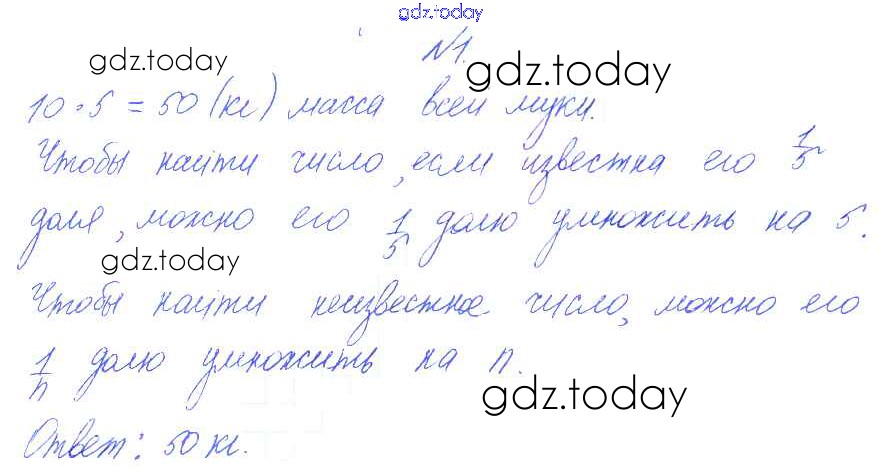 gdz.today
№1.
gdz.today
gdz.today
10·5=50(кг) масса всей муки.
Чтобы найти число, если известна его 1/5
доля, можно его 1/5 долю умножить на 5.
gdz.today
Чтобы найти неизвестное число, можно его
1/n долю умножить на n.
gdz.today
Ответ: 50 кг.